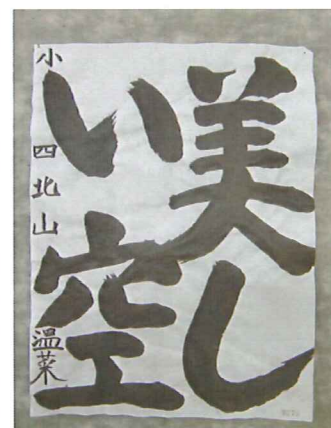 美し
い空
小四 北山 温菜